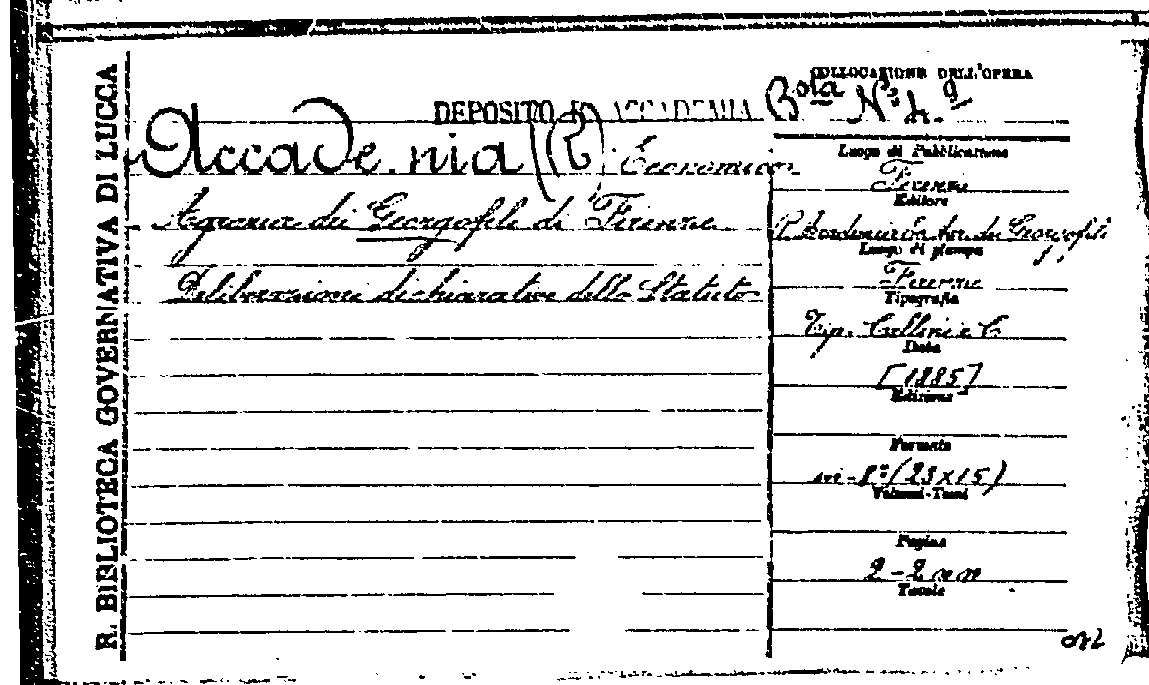 R. BIBLIOTECA GOVERNATIVA DI LUCCA
COLLOCAZIONE DELL'OPERA
DEPOSITO R. ACCADEMIA
Bsta N.º 4. 9
Accademia (R) Economico
Agraria dei Georgofili di Firenze
Deliberazioni dichiarative dello Statuto
Luogo di Pubblicazione
Firenze
Editore
R. Accademia dei Georgofili
Luogo di stampa
Firenze
Tipografia
Tip. Cellini e C.
Data
[1885]
Edizione
Formato
in-8º (23x15)
Volumi-Tomi
Pagine
2-2 nn
Tavole